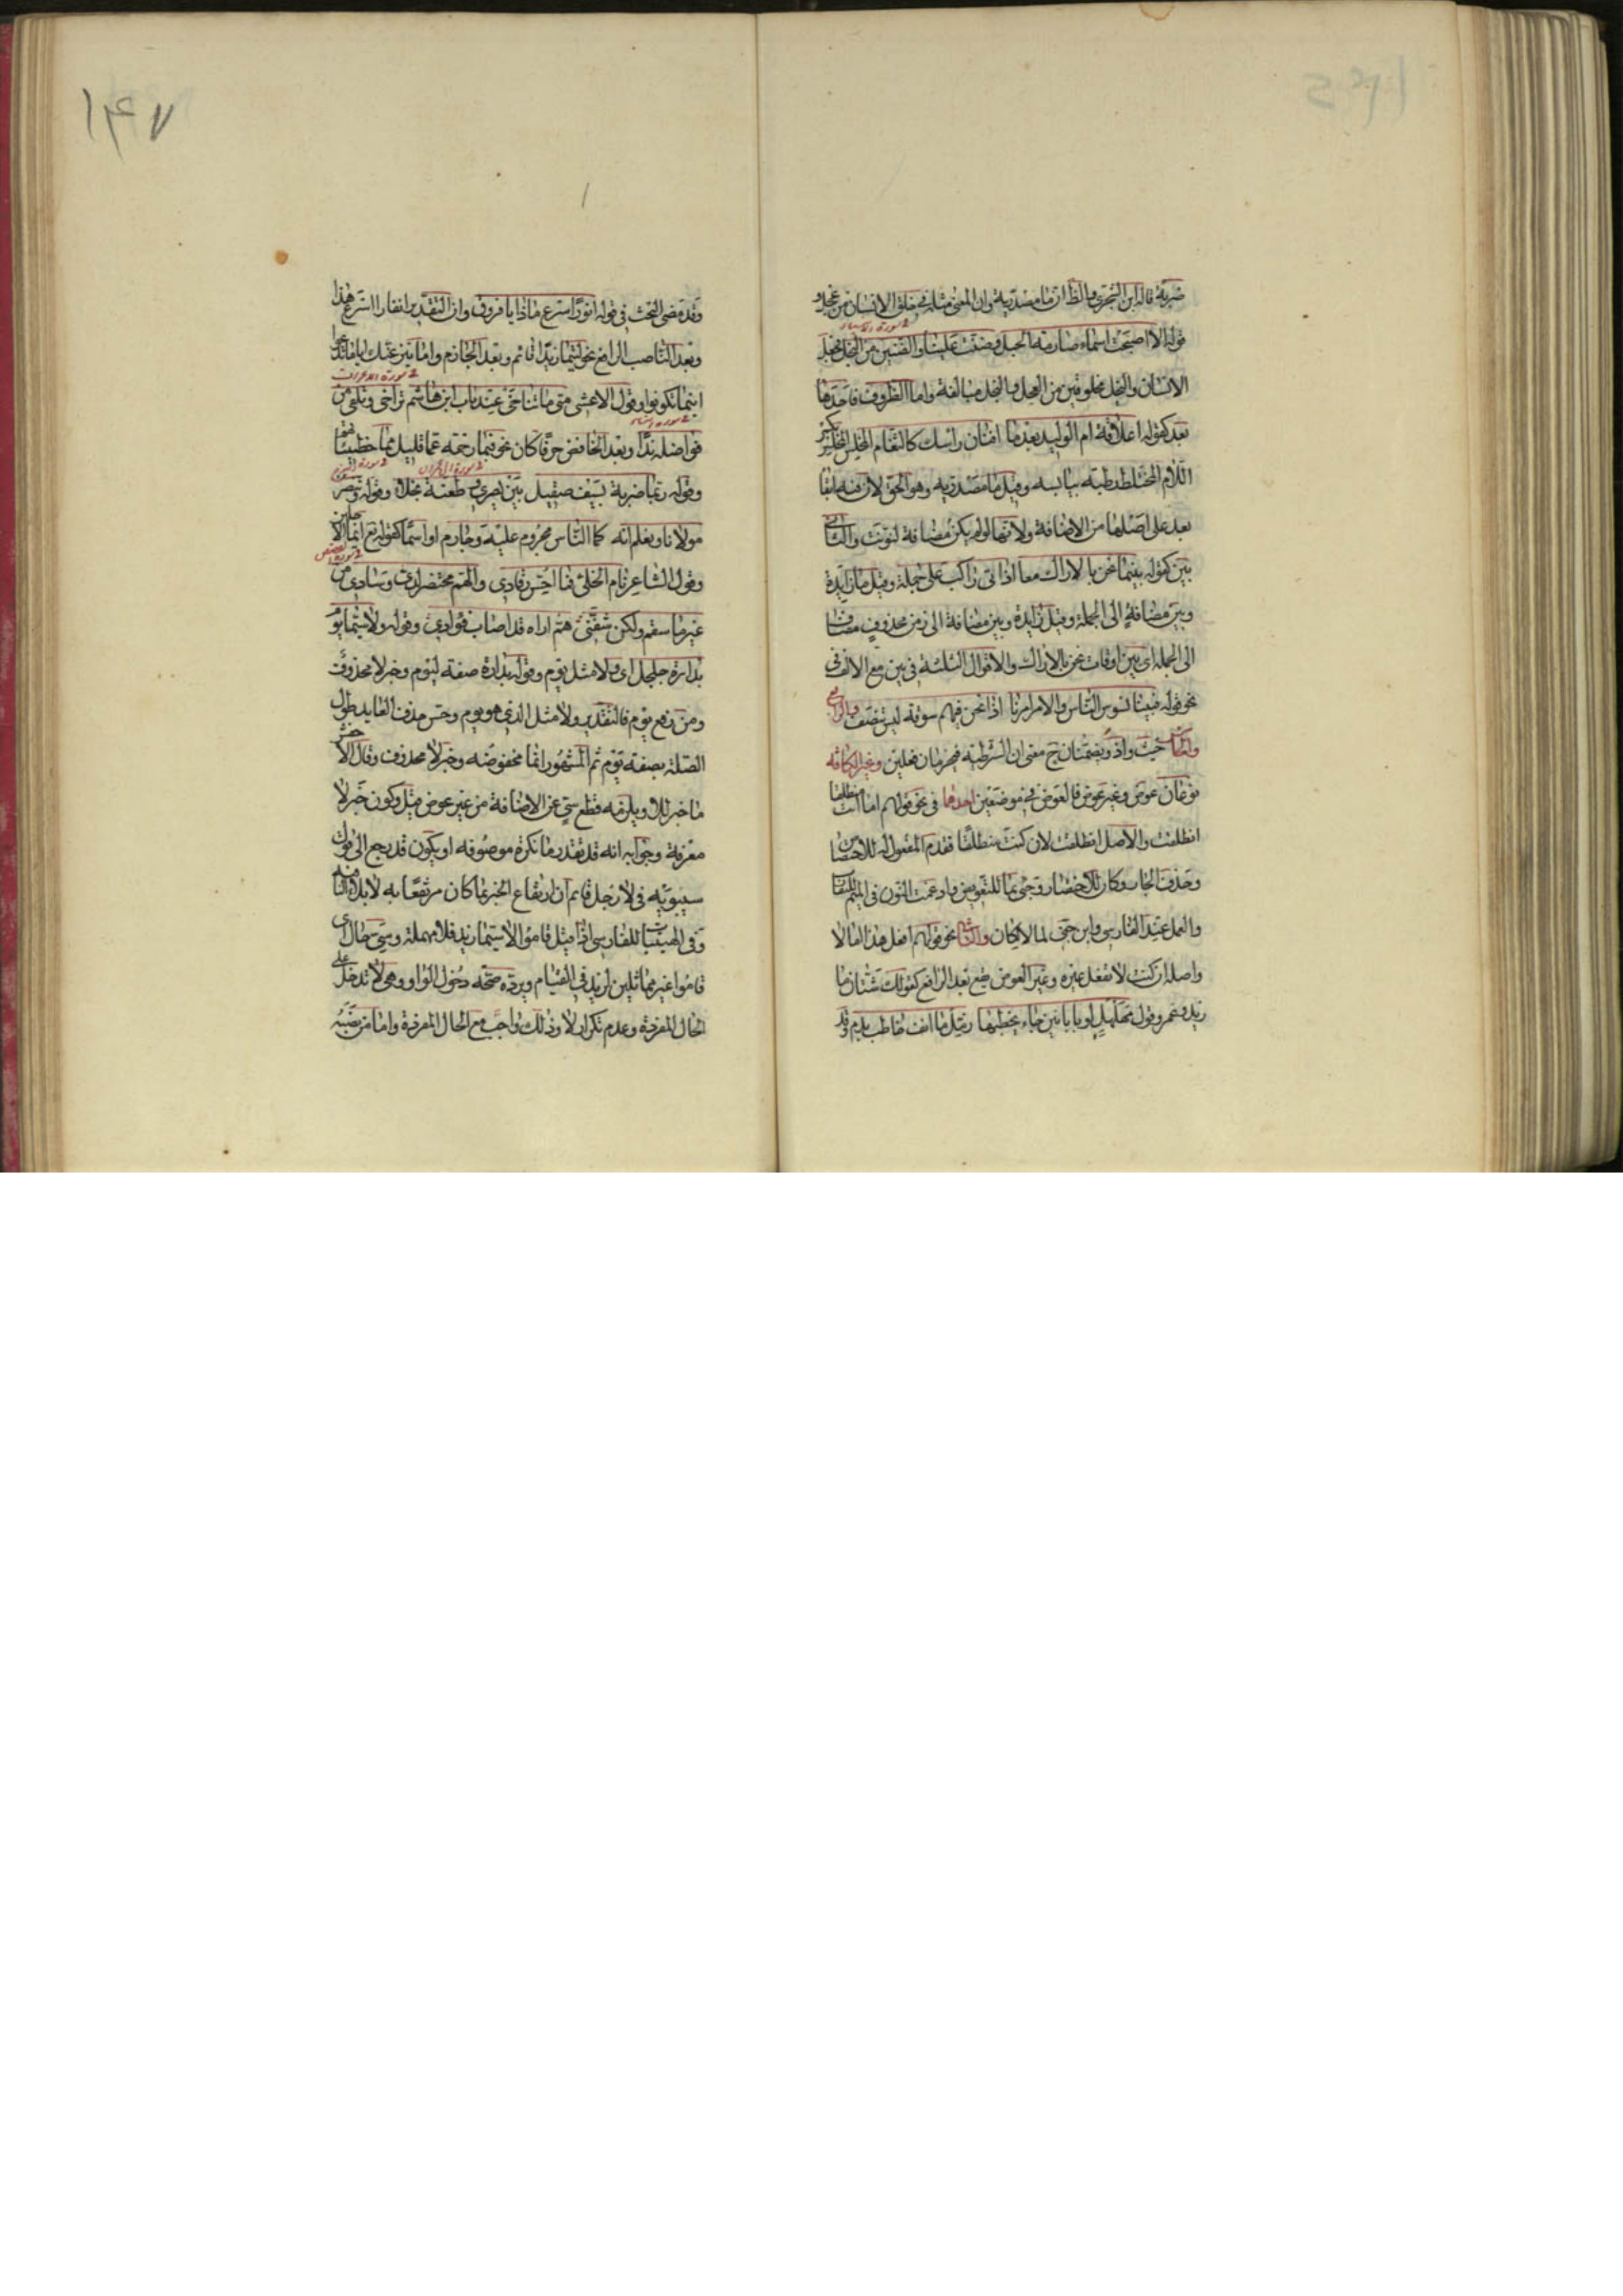 ضربة قاله ابن الشجري والظ ان ما مصدرية وان المعنى مثله في خلق الانسان من عجل و
قوله الا اصبحت اسماء صارمة الحبل وضنت علينا والضنين من البخل فجعل
سورة الانبياء
الانسان والبخيل مخلوقين من العجل والبخل مبالغة واما الظروف فاحدها
بعد كقوله اعلاقة ام الوليد بعد ما افنان راسك كالثغام المخلس المخلس بكسر
اللام المختلط رطبه بيابسه وقيل ما مصدرية وهو الحق لان فيه ابقا
بعد على اصلها من الاضافة ولانها لو لم يكن مضافة لنونت والثاني
بين كقوله بينما نحن بالاراك معا اذ اتى راكب على جمله وقيل ما زايدة
وبين مضافة الى الجملة وقيل زايدة وبين مضافة الى زمن محذوف مضاف
الى الجملة اى بين اوقات نحن بالاراك والاقوال الثلثة في بين مع الالف في
نحو قوله فبينا نسوس الناس والامر امرنا اذا نحن فيهم سوقة ليس تنصف والرابع
والثالث حيث واذ ويضمنان ح معنى ان الشرطية فيجزمان فعلين وغير الكافه
نوعان عوض وغير عوض فالعوض في موضعين احدهما في نحو قولهم اما انت منطلقا
انطلقت والاصل انطلقت لان كنت منطلقا فقدم المفعول له للاختصاص
وحذف الجار وكان للاختصار وجئ بما للتعويض وادغمت النون في الميم للتقارب
والعمل عند الفارسي وابن جنى لما لا لكان والثاني نحو قولهم افعل هذا اما لا
واصله ان كنت لا تفعل غيره وغير العوض يقع بعد الرافع كقولك شتان ما
زيد وعمرو وقول مهلهل لو بابانين جاء يخطبها رمل ما انف خاطب بدم وقد
وقد مضى البحث في قوله انورا سرع ماذا يا فروق وان التقدير انفارا اسرع هذا
وبعد الناصب الرافع نحو ليتما زيدا قائم وبعد الجازم واما ينزغنك اياما تدعوا
سورة الاعراف
اينما تكونوا وقول الاعشى متى ما تناخى عند باب ابن هاشم تراخى وتلقى من
سورة النساء
فواضله ندا وبعد الخافض حرفا كان نحو فبما رحمة عما قليل مما خطيئاتهم
سورة آل عمران
وقوله ربما ضربة بسيف صقيل بين بصرى وطعنة نجلاء وقوله وننصر
مولانا ونعلم انه كما الناس مجروم عليه وجارم او اسما كقوله تع ايما الاجلين
سورة القصص
وقول الشاعر نام الخلي فما احس رقادي والهم محتضر لدي وسادي من
غير ما سقم ولكن شفنى هم اراه قد اصاب فؤادي وقوله ولا سيما يوم
بدارة جلجل اى ولا مثل يوم وقوله بدارة صفة ليوم وخبر لا محذوف
ومن رفع يوم فالتقدير ولا مثل الذي هو يوم وحسن حذف العايد طول
الصلة بصفة يوم ثم المشهور انما مخفوضه وخبر لا محذوف وقال الاخفش
ما خبر للا ويلزمه قطع سي عن الاضافة من غير عوض قيل وكون خبر لا
معرفة وجوابه انه قد تقدر ما نكرة موصوفه او يكون قد رجع الى قول
سيبويه في لا رجل قائم ان ارتفاع الخبر بما كان مرتفعا به لا بلا النافية
وفي الهيتيات للفارسي اذا قيل قاموا لا سيما زيد فلا مهملة وسي حال اى
قاموا غير مماثلين لزيد في القيام ويرده صحة دخول الواو وهى لا تدخل على
الحال المفردة وعدم تكرار لا وذلك واجب مع الحال المفردة واما من نصبه